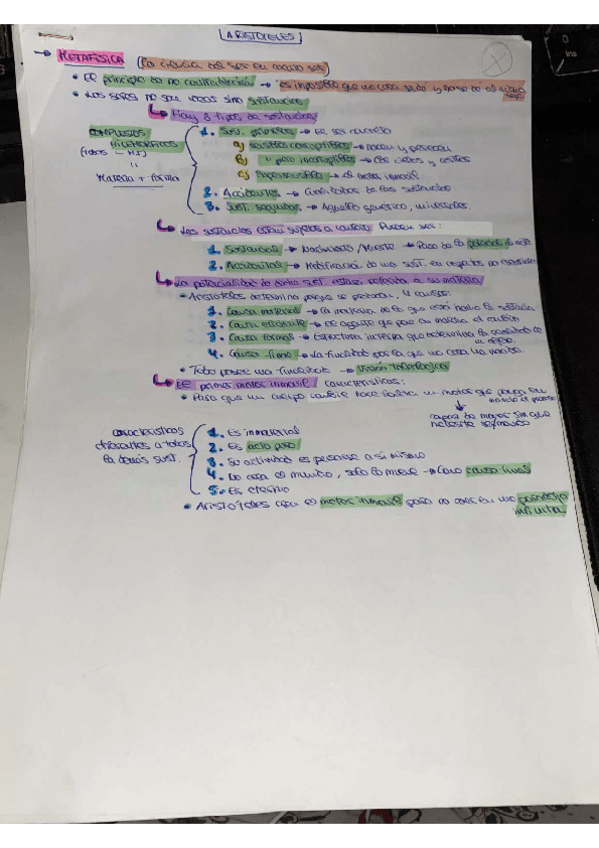 ARISTÓTELES
→ METAFÍSICA (La ciencia del ser en cuanto ser)
• El principio de no contradicción → "es imposible que una cosa sea y no sea al mismo
tiempo
• Los seres no son cosas sino sustancias
↳ Hay 3 tipos de sustancias:
COMPUESTOS
HILEMÓRFICOS
(todos - MI)
"
Materia + forma
1. Sust. primeras → El ser concreto
a) sensibles corruptibles → nacen y perecen
b) " pero incorruptibles → los cielos y astros
c) Suprasensible → el motor inmóvil
2. Accidentes → Cualidades de las sustancias
3. Sust. segundas → Aquello genérico, universales.
↳ Las sustancias están sujetas a cambio. Pueden ser:
1. Sustancial → Nacimiento / Muerte → Paso de la potencia al acto
2. Accidental → Modificación de una sust. en aspectos no esenciales
↳ La potencialidad de una sust. estará referida a su materia
• Aristóteles determina porque se producen, 4 causas:
1. Causa material → la materia de la que está hecha la sustancia
2. Causa eficiente → El agente que pone en marcha el cambio
3. Causa formal → Estructura interna que determina la
4. Causa final → La finalidad por la que una cosa ha nacido.
• Todo posee una finalidad → Visión teleológica
↳ El primer motor inmóvil características:
• Para que un cuerpo cambie hace falta un motor que ponga en
marcha el proceso
↓
capaz de mover sin que
necesite
características
diferentes a todas
la demás sust.
1. Es inmaterial
2. Es acto puro
3. Su actividad es pensarse a sí mismo
4. No crea el mundo, solo lo mueve → Como causa final
5. Es eterno
• Aristóteles crea el motor inmóvil para no caer en una
infinita